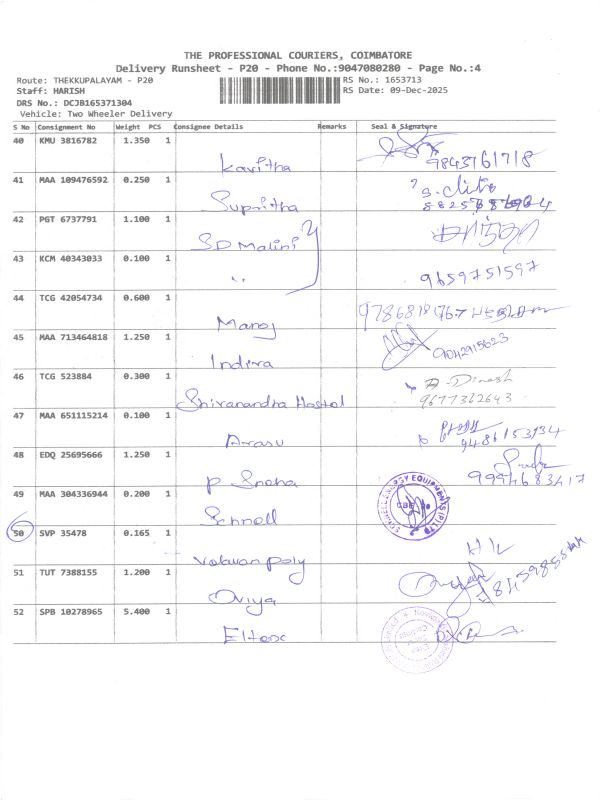 THE PROFESSIONAL COURIERS, COIMBATORE
Delivery Runsheet - P20 - Phone No.:9047080280 - Page No.:4
Route: THEKKUPALAYAM - P20 RS No.: 1653713
Staff: HARISH RS Date: 09-Dec-2025
DRS No.: DCJB165371304
Vehicle: Two Wheeler Delivery
S No Consignment No Weight PCS Consignee Details Remarks Seal & Signature
40 KMU 3816782 1.350 1
Kavitha 9843761718
41 MAA 109476592 0.250 1
Supritha
42 PGT 6737791 1.100 1
SD Malini
43 KCM 40343033 0.100 1
" 9659751597
44 TCG 42054734 0.600 1
Manoj
45 MAA 713464818 1.250 1
Indira 9042915623
46 TCG 523884 0.300 1
Shivanandha Hostol Dinesh
9677362643
47 MAA 651115214 0.100 1
Arasu 9486153934
48 EDQ 25695666 1.250 1
P Sneha 9994683417
49 MAA 304336944 0.200 1
Schnell
50 SVP 35478 0.165 1
Valwan poly
51 TUT 7388155 1.200 1
Oviya
52 SPB 10278965 5.400 1
Eltex